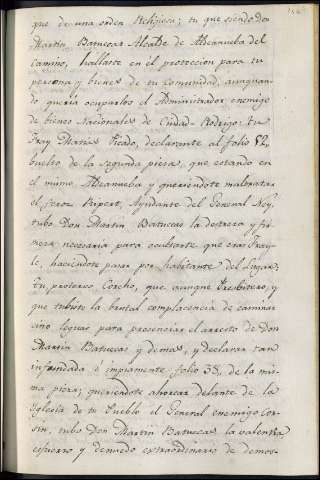 que de una orden Religiosa; tu que siendo Don
Martin Batuecas Alcalde de Aldeanueba del
Camino, hallaste en el proteccion para tu
persona y bienes de tu Comunidad, aun quan-
do queria ocuparlos el Administrador enemigo
de bienes Nacionales de Ciudad Rodrigo: tu
Fray Matias Picado, declarante al folio 52,
buelto de la segunda pieza, que estando en
el mismo Aldeanueba y queriendote maltratar
el feroz Ripert, Ayudante del General Ney,
tubo Don Martin Batuecas la destreza y fir-
meza necesaria para ocultarte que eras Fray-
le, haciendote pasar por habitante del Lugar;
tu Corcho, que aunque Presbitero, y
que tubiste la brutal complacencia de caminar
cinco leguas para presenciar el arresto de Don
Martin Batuecas y demas, y declarar tan
infundada é impiamente folio 35, de la mis-
ma pieza; queriendote ahorcar delante de la
Iglesia de tu Pueblo el General enemigo Cor-
sin, tubo Don Martin Batuecas la valentia
esfuerzo y denuedo extraordinario de demos-